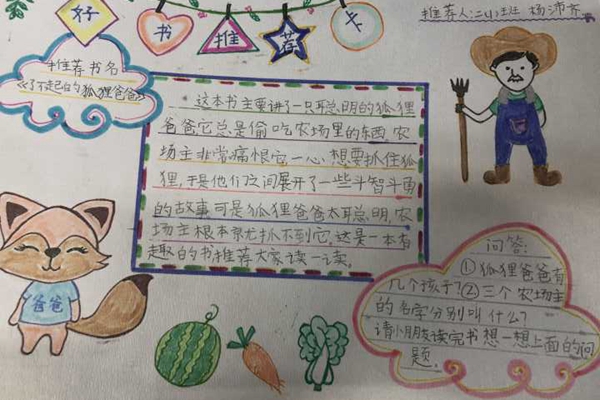 好书推荐卡
推荐人:二4班 杨沛齐
推荐书名
《了不起的狐狸爸爸》
这本书主要讲了一只聪明的狐狸
爸爸它总是偷吃农场里的东西,农
场主非常痛恨它一心想要抓住狐
狸,于是他们之间展开了一些斗智斗勇
的故事可是狐狸爸爸太聪明,农
场主根本就抓不到它,这是一本有
趣的书推荐大家读一读。
爸爸
问答:
①狐狸爸爸有
几个孩子?②三个农场主
的名字分别叫什么?
请小朋友读完书想一想上面的问
题。